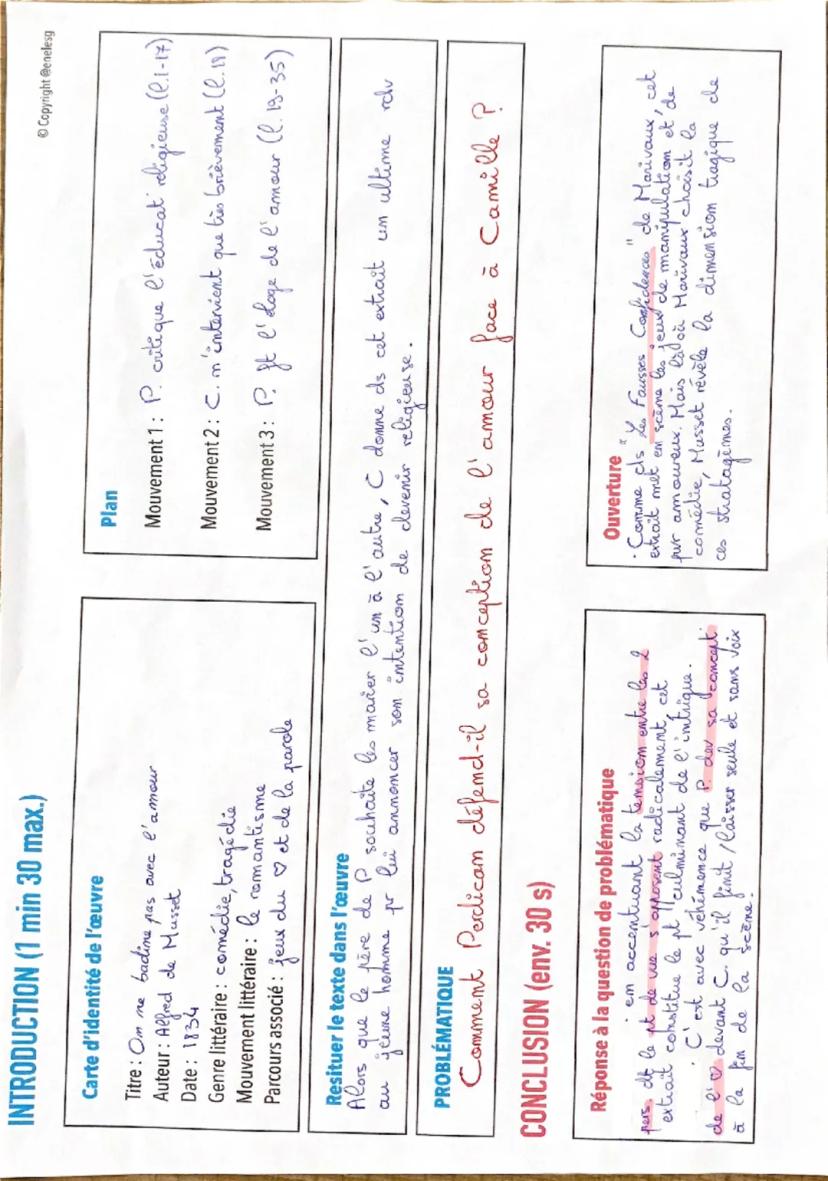 © Copyright @enelesg
INTRODUCTION (1 min 30 max.)
Carte d'identité de l'œuvre
Titre : On ne badine pas avec l'amour
Auteur : Alfred de Musset
Date : 1834
Genre littéraire : comédie, tragédie
Mouvement littéraire : le romantisme
Parcours associé : jeux du ♡ et de la parole
Plan
Mouvement 1 : P. critique l'éducat° religieuse (l.1-17)
Mouvement 2 : C. n'intervient que très brièvement (l.18)
Mouvement 3 : P. ft l'éloge de l'amour (l.19-35)
Resituer le texte dans l'œuvre
Alors que le père de P souhaite les marier l'un à l'autre, C donne ds cet extrait un ultime rdv
au jeune homme pr lui annoncer son intention de devenir religieuse.
PROBLÉMATIQUE
Comment Perdican défend-il sa conception de l'amour face à Camille ?
CONCLUSION (env. 30 s)
Réponse à la question de problématique
· en accentuant la tension entre les 2
pers. dt le pt de vue s'opposent radicalement, cet
extrait constitue le pt culminant de l'intrigue.
· C'est avec véhémence que P. dev sa concept°
de l'♡ devant C. qu'il finit / laisser seule et sans voix
à la fin de la scène.
Ouverture
· Comme ds "Les Fausses Confidences" de Marivaux, cet
extrait met en scène les jeux de manipulation et de
pvr amoureux. Mais là où Marivaux choisit la
comédie, Musset révèle la dimension tragique de
ces stratagèmes.